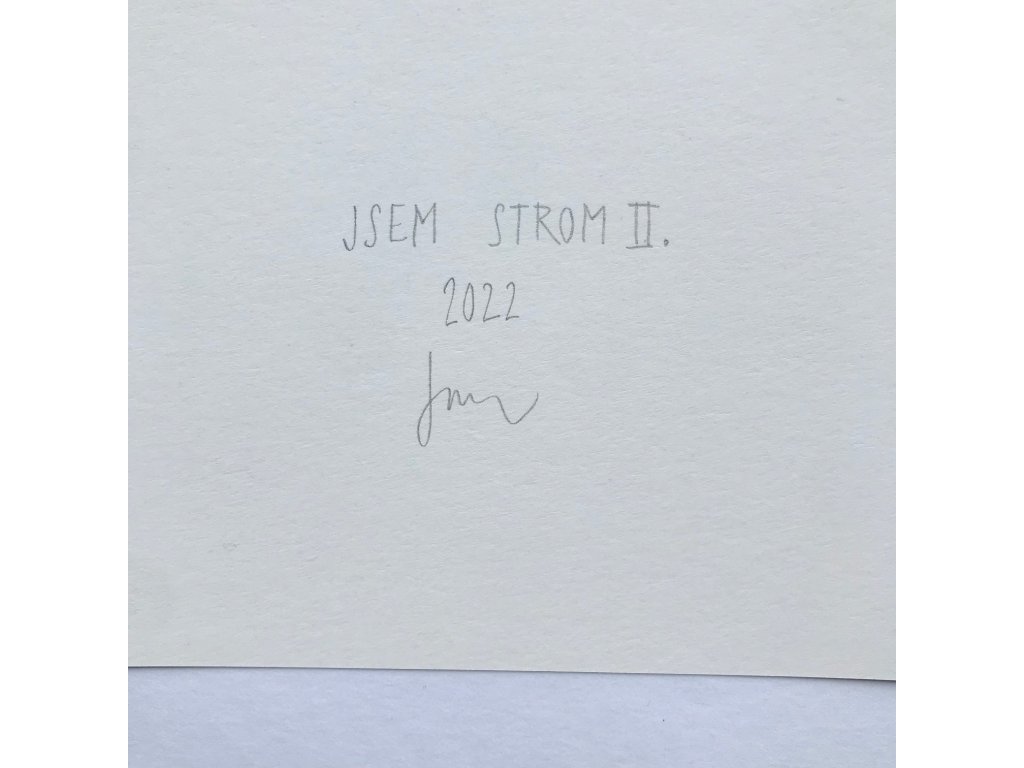 JSEM STROM II.
2022